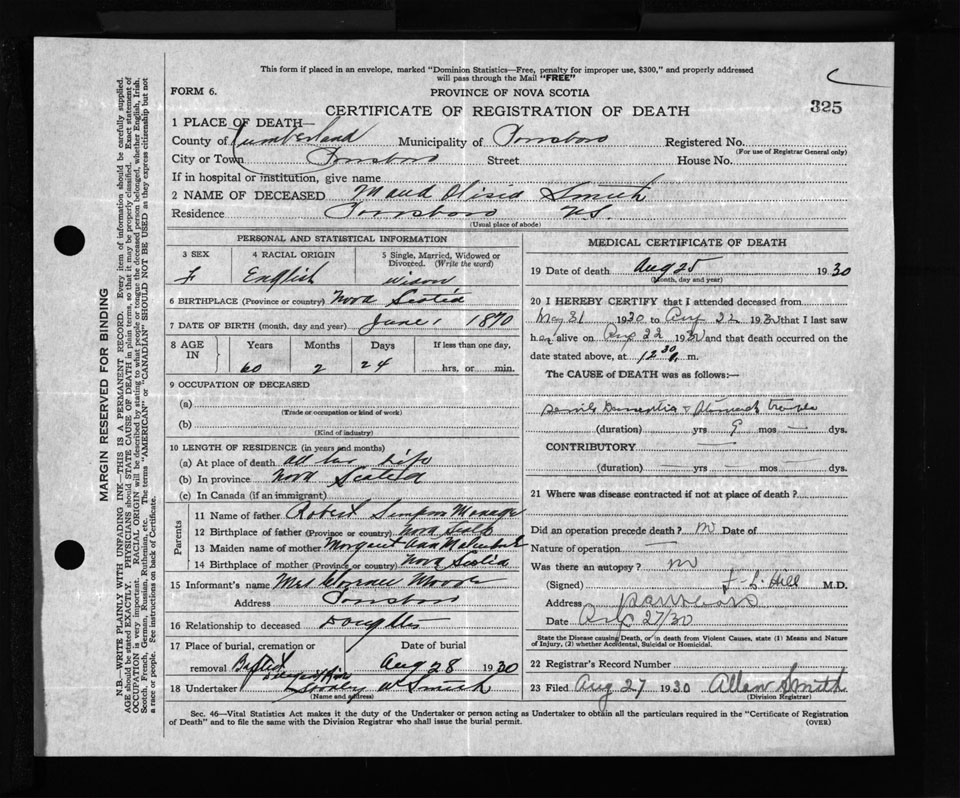 This form if placed in an envelope, marked "Dominion Statistics—Free, penalty for improper use, $300," and properly addressed
will pass through the Mail "FREE"
FORM 6.
PROVINCE OF NOVA SCOTIA
CERTIFICATE OF REGISTRATION OF DEATH
325
1 PLACE OF DEATH—
County of Cumberland Municipality of Parrsboro Registered No.
(For use of Registrar General only)
City or Town Parrsboro Street House No.
If in hospital or institution, give name
2 NAME OF DECEASED Maud Smith
Residence Parrsboro N.S.
(Usual place of abode)
PERSONAL AND STATISTICAL INFORMATION
3 SEX 4 RACIAL ORIGIN 5 Single, Married, Widowed or
Divorced. (Write the word)
F English widow
6 BIRTHPLACE (Province or country) Nova Scotia
7 DATE OF BIRTH (month, day and year) June 1 1870
8 AGE IN Years Months Days If less than one day,
60 2 24 hrs, or min.
9 OCCUPATION OF DECEASED
(a)
(Trade or occupation or kind of work)
(b)
(Kind of industry)
10 LENGTH OF RESIDENCE (in years and months)
(a) At place of death all her life
(b) In province Nova Scotia
(c) In Canada (if an immigrant)
Parents
11 Name of father Robert Simpson
12 Birthplace of father (Province or country) Nova Scotia
13 Maiden name of mother Margaret
14 Birthplace of mother (Province or country) Nova Scotia
15 Informant's name Mrs Moore
Address Parrsboro
16 Relationship to deceased Daughter
17 Place of burial, cremation or Date of burial
removal Baptist Aug 28 1930
18 Undertaker W Smith
(Name and address)
MEDICAL CERTIFICATE OF DEATH
19 Date of death Aug 25 1930
(Month, day and year)
20 I HEREBY CERTIFY that I attended deceased from
May 31 1930 to Aug 22 1930 that I last saw
her alive on Aug 22 1930 and that death occurred on the
date stated above, at 12 30 m.
The CAUSE of DEATH was as follows:—
Senile Dementia & Stomach trouble
(duration) yrs 9 mos — dys.
CONTRIBUTORY —
(duration) — yrs — mos — dys.
21 Where was disease contracted if not at place of death?
Did an operation precede death? no Date of
Nature of operation —
Was there an autopsy? no
(Signed) Hill M.D.
Address Parrsboro
Date 27/30
State the Disease causing Death, or in death from Violent Causes, state (1) Means and Nature
of Injury, (2) whether Accidental, Suicidal or Homicidal.
22 Registrar's Record Number
23 Filed Aug 27 1930 Allan Smith
(Division Registrar)
Sec. 46—Vital Statistics Act makes it the duty of the Undertaker or person acting as Undertaker to obtain all the particulars required in the "Certificate of Registration
of Death" and to file the same with the Division Registrar who shall issue the burial permit. (OVER)
MARGIN RESERVED FOR BINDING
N.B.—WRITE PLAINLY WITH UNFADING INK—THIS IS A PERMANENT RECORD. Every item of information should be carefully supplied.
AGE should be stated EXACTLY. PHYSICIANS should STATE CAUSE OF DEATH in plain terms, so that it may be properly classified. Exact statement of
OCCUPATION is very important. RACIAL ORIGIN will be described by stating to what people or tongue the deceased person belonged, whether English, Irish,
Scotch, French, German, Russian, Ruthenian, etc. The terms "AMERICAN" or "CANADIAN" SHOULD NOT BE USED as they express citizenship but not
a race or people. See instructions on back of Certificate.